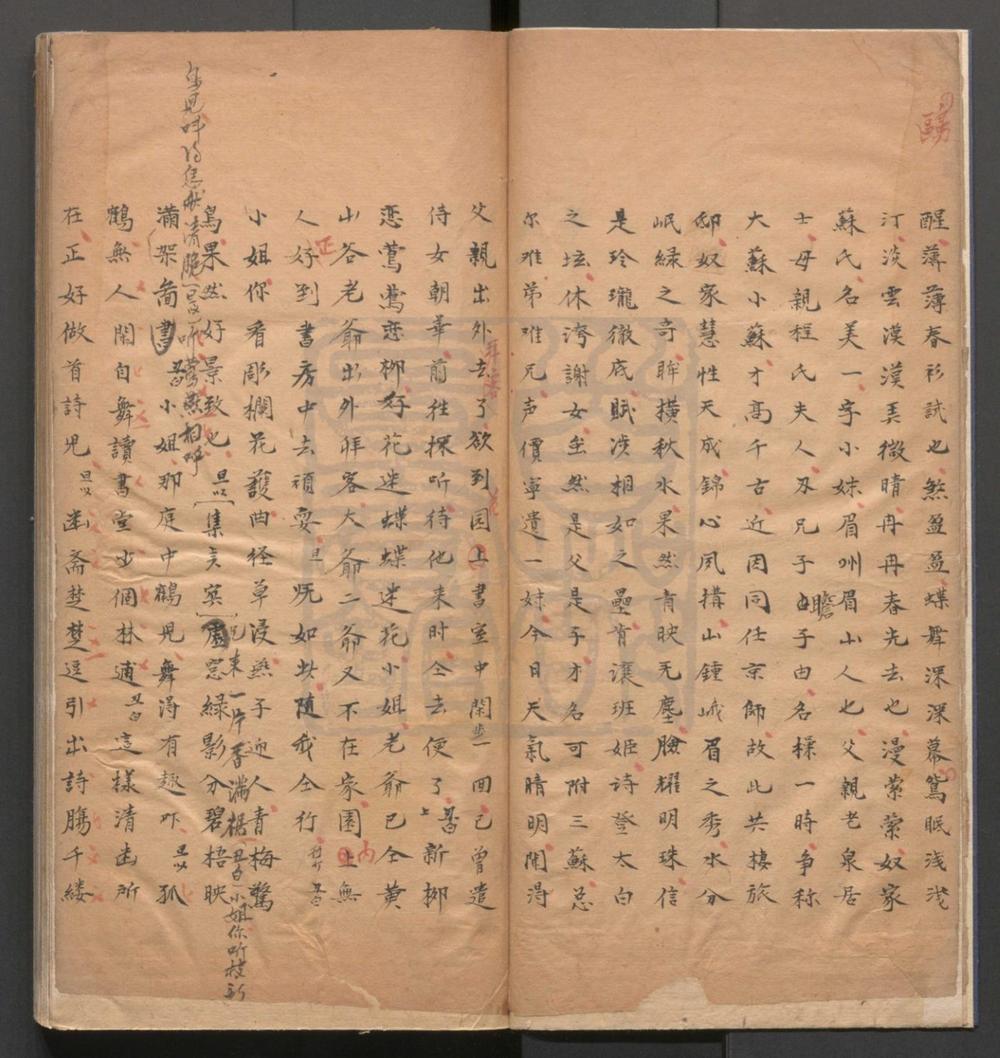 醒薄薄春衫試也煞盈盈蝶舞深深幕鶯眠淺淺
汀淡雲漠漠美微晴冉冉春光去也漫縈縈奴家
蘇氏名美一字小妹眉州眉山人也父親老泉居
士母親程氏夫人及兄子瞻子由名標一時爭称
大蘇小蘇才高千古近因同任京師故此共棲旅
邸奴家慧性天成錦心夙搆山鍾峨眉之秀水分
岷綠之奇眸橫秋水果然青映无塵臉耀明珠信
是玲瓏徹底賦涉相如之壘肯讓班姬詩登太白
之坛休誇謝女虽然是父是子才名可附三蘇总
尔难弟难兄声價寧遺一妹今日天氣晴明閑淂
父親出外去了欲到园上書室中閑步一回已曾遣
侍女朝華前往探听待他来时仝去便了上旦新柳
恋鶯鶯恋柳好花迷蝶蝶迷花小姐老爺已仝黄
山谷老爺出外拜客大爺二爺又不在家園上無
人正好到書房中去頑耍旦既如此随我仝行
小姐你看彫欄花護曲径草浸燕子迎人青梅驚
鳥果然好景致也旦以集美寞虛窓綠影分碧梧映
滿架啚書小姐那庭中鶴児舞淂有趣吓旦以孤
鶴無人閑自舞讀書堂少個林逋丑白這樣清幽所
在正好做首詩児旦以幽斋楚楚逗引出詩腸千縷